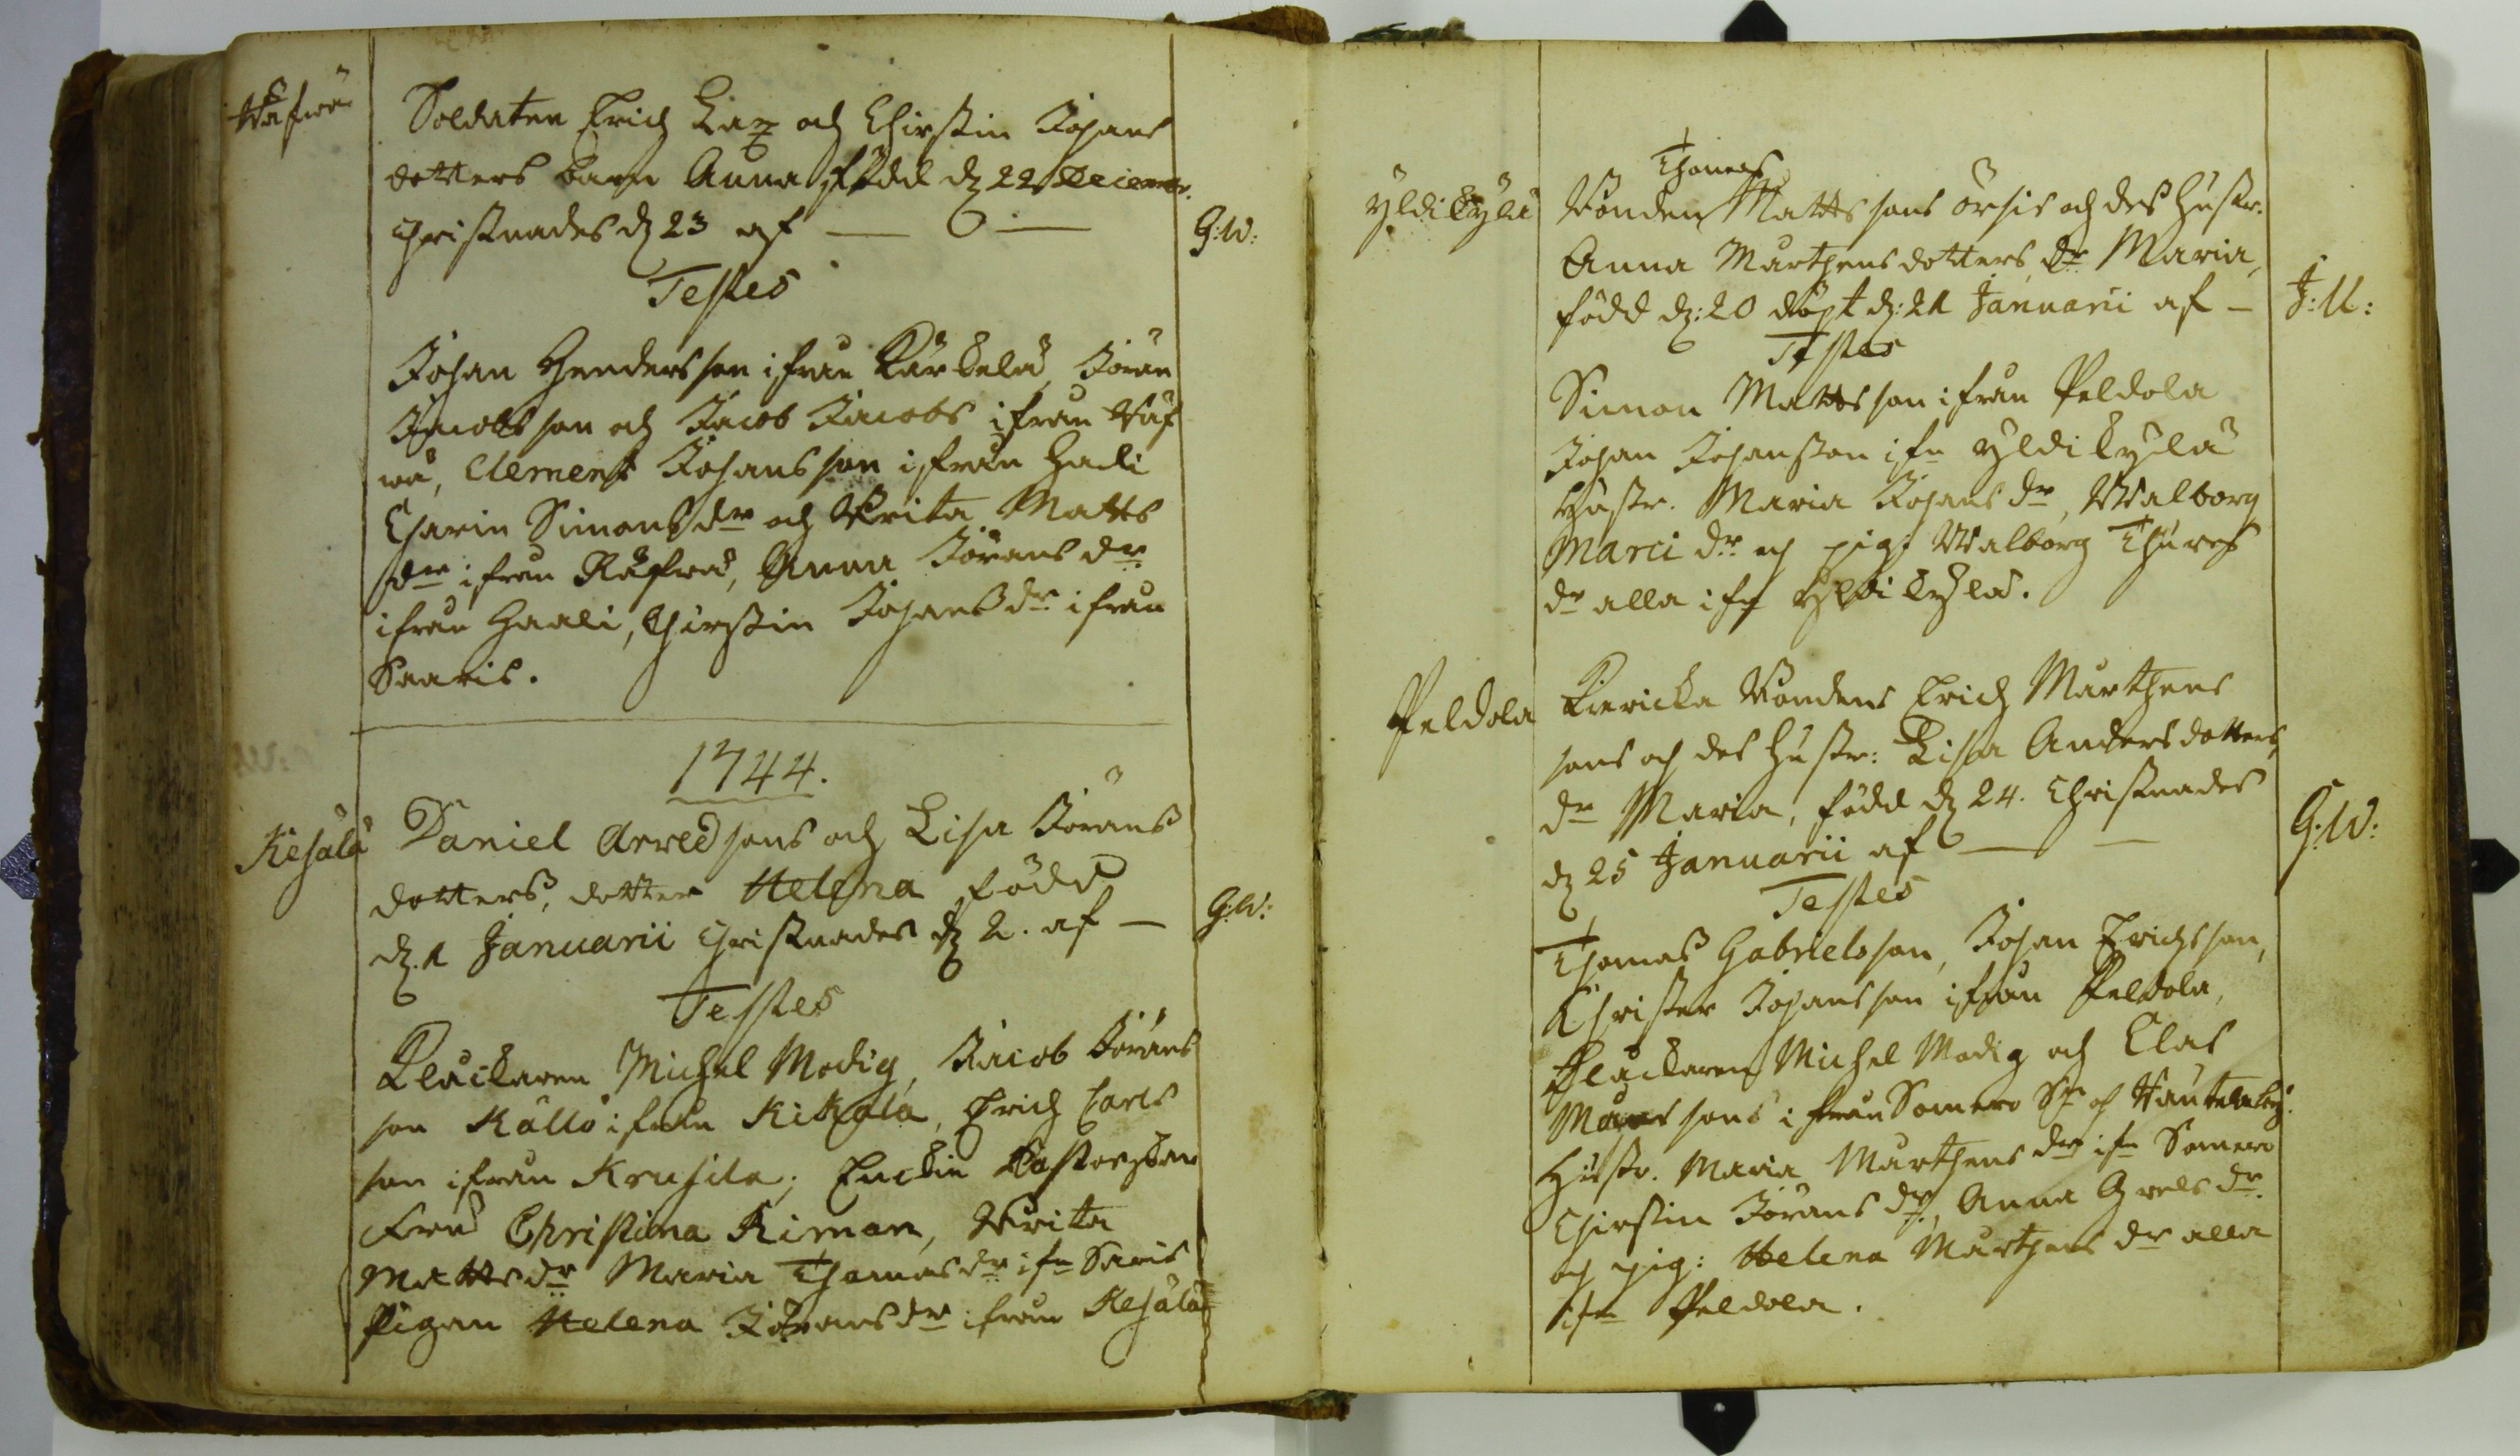 Soldaten Erich Lax och Chirstin Johans
dotters barn Anna född dz 22 Decemr.
christnades dz 23 af G:W:
Testes
Johan Hendersson ifrån Kärkelä, Jöran
Jacobsson och Jacob Jacobs ifrån
wä, Clement Johansson ifrån Hali
Charin Simonsdr och Brita Matts
dr ifrån Räfwä, Anna Jöransdr
ifrån Haali, Chirstin Johansdr ifrån
Saaris.
1744.
Kesälä Daniel Arvedsons och Lisa Jörans
dotters, dotter Helena född
dz. 1 Januarii christnades dz 2. af — G:W:
Testes
Klåckaren Michel Modig, Jacob Jörans
son Källo ifrån Kikala, Erich Carls
son ifrån Krusila; Enckie Pastorskan
Fru Christina Kiman, Brita
Mattsdr Maria Thomasdr ifn Saris
Pigan Helena Jöransdr ifrån Kesälä
Thomas
Yldikylä Bonden Mattssons örsis och des hustr.
Anna Mårthensdotters, dr Maria,
född dz: 20 döpt dz: 21 Januarii af — J:U:
Testes
Simon Mattsson ifrån Peldola
Johan Johansson ifn Yldikylä
Hustr. Maria Johansdr, Walborg
Marci dr och pig: Walborg Thures
dr alla ifn Yldikylä.
Peldola Bonden Erich Mårthens
sons och des hustr: Lisa Andersdotters,
dr Maria, född dz 24. Christnades
dz 25 Januarii af — G:W:
Testes
Thomas Gabrielsson, Johan Erichsson,
Christer Johansson ifrån Peldola,
Klåckaren Michel Modig och Clas
sons ifrån Somero Sn och
Hustr. Maria Mårthensdr ifn Somero
Chirstin Jöransdr, Anna Grelsdr
och pig: Helena Mårthensdr alla
ifn Peldola.